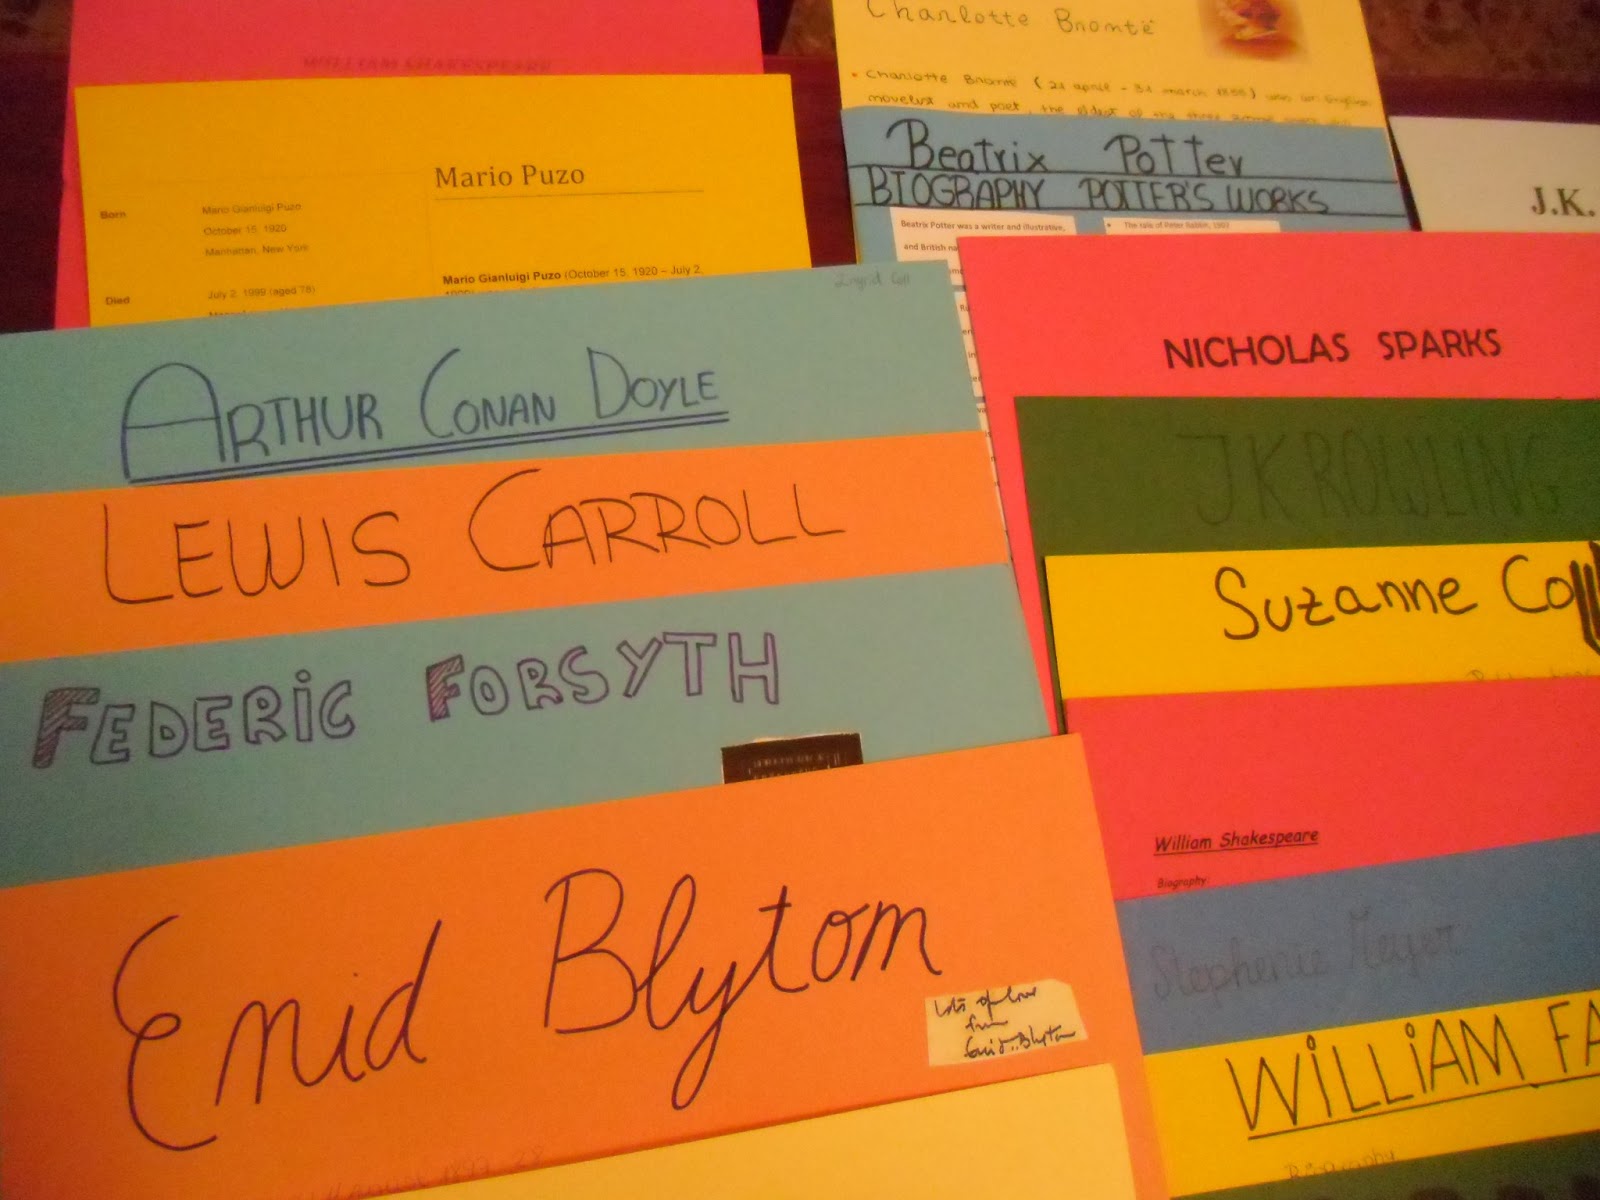 WILLIAM SHAKESPEARE
Mario Puzo
Born
Mario Gianluigi Puzo
October 15, 1920
Manhattan, New York
Mario Gianluigi Puzo (October 15, 1920 – July 2,
Died
July 2, 1999 (aged 78)
Charlotte Brontë
Charlotte Brontë (21 april - 31 march 1855) was an English
novelist and poet, the eldest of the three
Beatrix Potter
BIOGRAPHY POTTER'S WORKS
Beatrix Potter was a writer and illustrative,
and British na
The tale of Peter Rabbit, 1902
J.K.
Ingrid Coll
ARTHUR CONAN DOYLE
LEWIS CARROLL
FEDERIC FORSYTH
Enid Blytom
Lots of love
from
Enid Blyton
NICHOLAS SPARKS
J.K ROWLING
Suzanne Coll
William Shakespeare
Biography:
Stephenie Meyer
WILLIAM FA
Biography